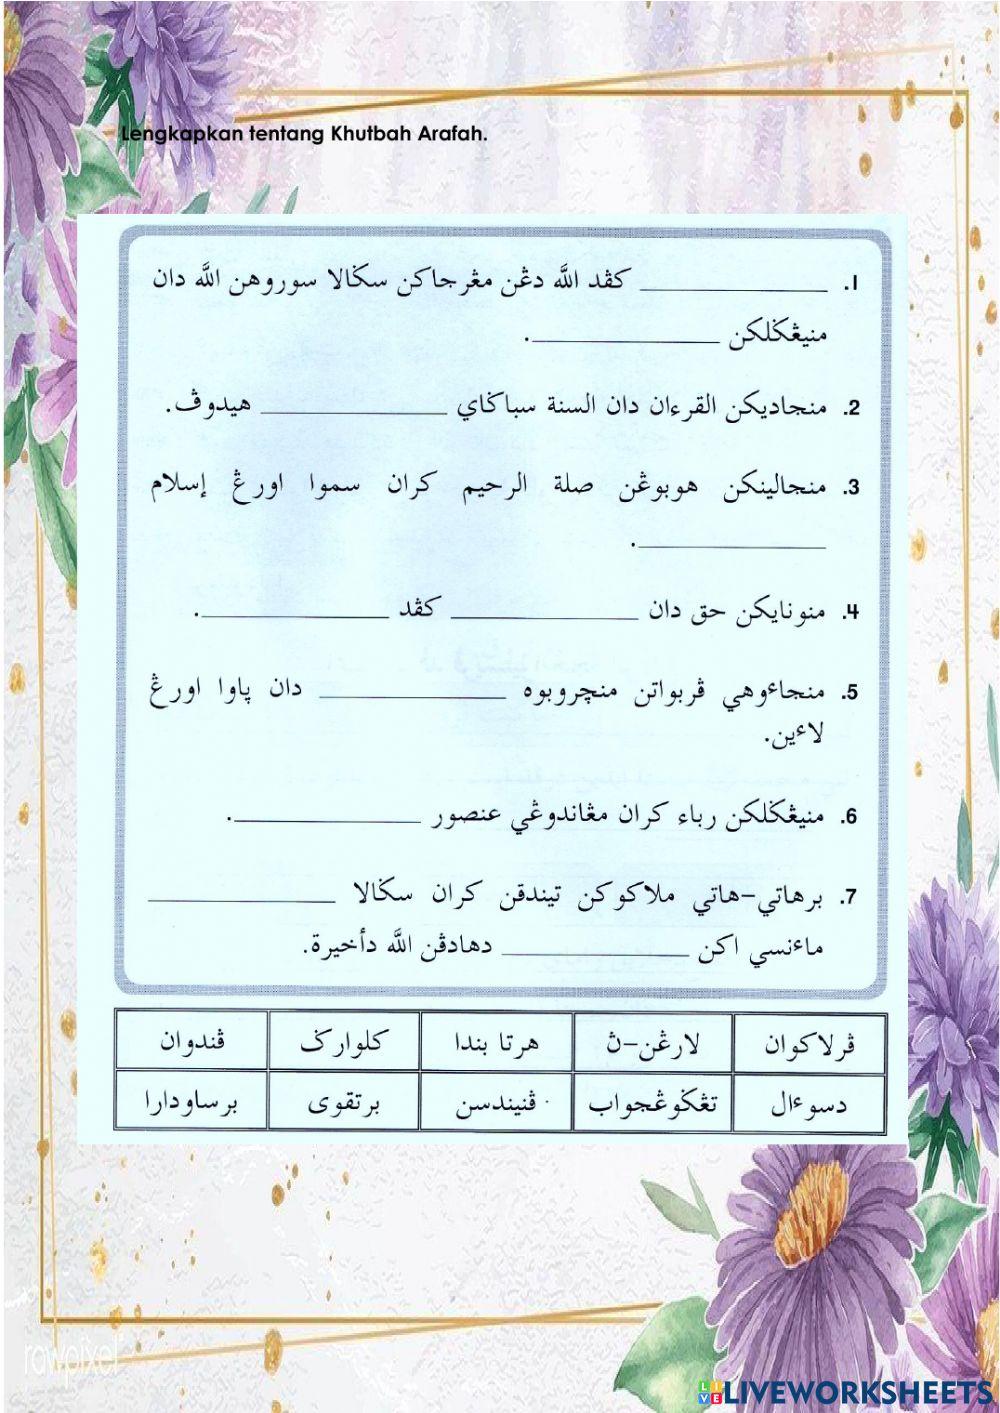 Lengkapkan tentang Khutbah Arafah.
1. ______________ كڤد اللَّه دڠن مڠرجاكن سݢالا سوروهن اللَّه دان
منيڠݢلكن ______________.
2. منجاديكن القرءان دان السنة سباݢاي ______________ هيدوڤ.
3. منجالينكن هوبوڠن صلة الرحيم كران سموا اورڠ إسلام
______________.
4. منونايكن حق دان ______________ كڤد ______________.
5. منجاءوهي ڤربواتن منچروبوه ______________ دان ڽاوا اورڠ
لاءين.
6. منيڠݢلكن رباء كران مڠاندوڠي عنصور ______________.
7. برهاتي-هاتي ملاكوكن تيندقن كران سݢالا ______________
ماءنسي اكن ______________ دهادڤن اللَّه دأخيرة.
ڤرلاكوان لارڠن-ڽ هرتا بندا كلوارݢ ڤندوان
دسوءال تڠݢوڠجواب ڤنيندسن برتقوى برساودارا
rawpixel
LIVEWORKSHEETS